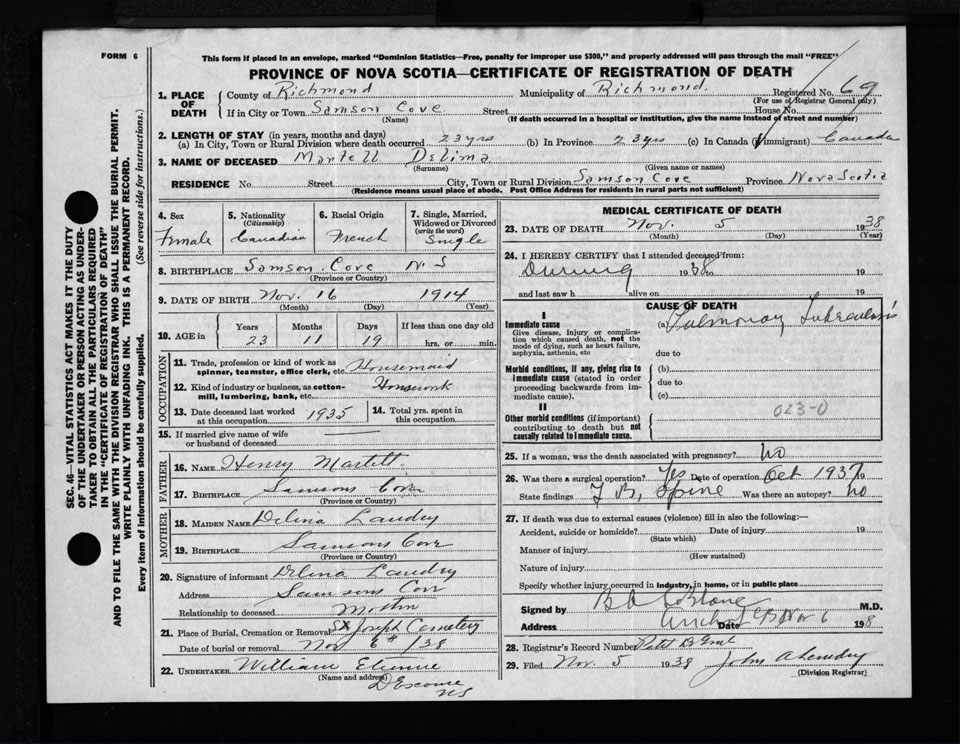 FORM 6
This form if placed in an envelope, marked "Dominion Statistics—Free, penalty for improper use $300," and properly addressed will pass through the mail "FREE"
PROVINCE OF NOVA SCOTIA—CERTIFICATE OF REGISTRATION OF DEATH
SEC. 46—VITAL STATISTICS ACT MAKES IT THE DUTY
OF THE UNDERTAKER OR PERSON ACTING AS UNDER-
TAKER TO OBTAIN ALL THE PARTICULARS REQUIRED
IN THE "CERTIFICATE OF REGISTRATION OF DEATH"
AND TO FILE THE SAME WITH THE DIVISION REGISTRAR WHO SHALL ISSUE THE BURIAL PERMIT.
WRITE PLAINLY WITH UNFADING INK. THIS IS A PERMANENT RECORD.
Every item of information should be carefully supplied. (See reverse side for instructions.)
1. PLACE OF DEATH County of Richmond Municipality of Richmond. Registered No. 69
(For use of Registrar General only)
If in City or Town Samson Cove Street House No.
(Name) (If death occurred in a hospital or institution, give the name instead of street and number)
2. LENGTH OF STAY (in years, months and days)
(a) In City, Town or Rural Division where death occurred 23 yrs (b) In Province 23 yrs (c) In Canada (if immigrant) Canada
3. NAME OF DECEASED Martell Delima
(Surname) (Given name or names)
RESIDENCE No. Street City, Town or Rural Division Samson Cove Province Nova Scotia
(Residence means usual place of abode. Post Office Address for residents in rural parts not sufficient)
4. Sex Female
5. Nationality (Citizenship) Canadian
6. Racial Origin French
7. Single, Married, Widowed or Divorced (write the word) Single
8. BIRTHPLACE Samson Cove N S
(Province or Country)
9. DATE OF BIRTH Nov. 16 1914
(Month) (Day) (Year)
10. AGE in Years 23 Months 11 Days 19 If less than one day old hrs. or min.
OCCUPATION
11. Trade, profession or kind of work as spinner, teamster, office clerk, etc. Housemaid
12. Kind of industry or business, as cotton-mill, lumbering, bank, etc. Housework
13. Date deceased last worked at this occupation 1935
14. Total yrs. spent in this occupation
15. If married give name of wife or husband of deceased
FATHER
16. NAME Henry Martell
17. BIRTHPLACE Samsons Cove
(Province or Country)
MOTHER
18. MAIDEN NAME Delina Landry
19. BIRTHPLACE Samsons Cove
(Province or Country)
20. Signature of informant Delina Landry
Address Samsons Cove
Relationship to deceased Mother
21. Place of Burial, Cremation or Removal St Joseph Cemetery
Date of burial or removal Nov 6th /38
22. UNDERTAKER William Etienne
(Name and address) D'Escousse
NS
MEDICAL CERTIFICATE OF DEATH
23. DATE OF DEATH Nov. 5 1938
(Month) (Day) (Year)
24. I HEREBY CERTIFY that I attended deceased from:
During 1938 to 19
and last saw h alive on 19
CAUSE OF DEATH
I
Immediate cause
Give disease, injury or complication which caused death, not the mode of dying, such as heart failure, asphyxia, asthenia, etc
(a) Pulmonary Tuberculosis
due to
Morbid conditions, if any, giving rise to immediate cause (stated in order proceeding backwards from immediate cause).
(b)
due to
(c)
II
Other morbid conditions (if important) contributing to death but not causally related to immediate cause.
023-0
25. If a woman, was the death associated with pregnancy? No
26. Was there a surgical operation? Yes Date of operation Oct 1937 19
State findings T B, Spine Was there an autopsy? No
27. If death was due to external causes (violence) fill in also the following:—
Accident, suicide or homicide? Date of injury 19
(State which)
Manner of injury
(How sustained)
Nature of injury
Specify whether injury occurred in industry, in home, or in public place
Signed by M.D.
Address Date Nov 6 1938
28. Registrar's Record Number
29. Filed Nov. 5 1938 John A Landry
(Division Registrar)